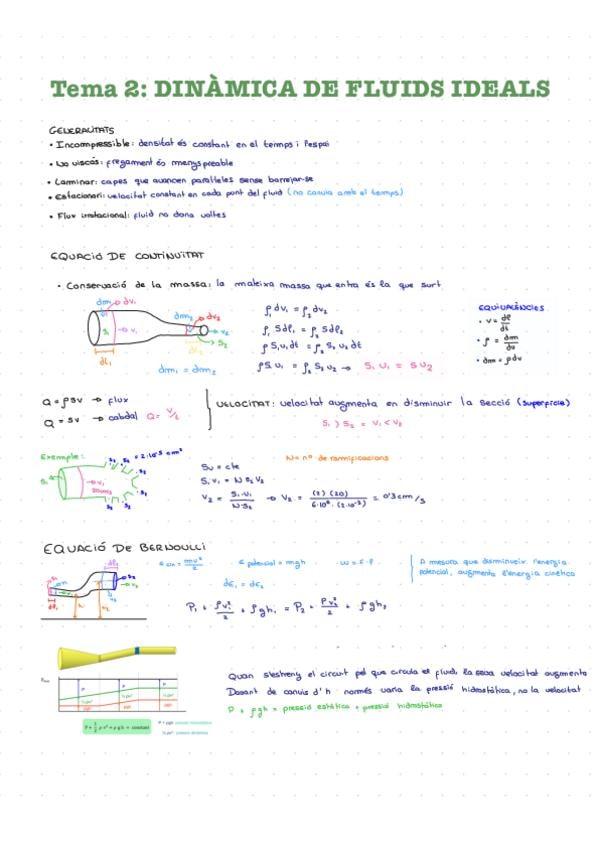 Tema 2: DINÀMICA DE FLUIDS IDEALS
GENERALITATS
• Incompressible: densitat és constant en el temps i l'espai
• No viscós: fregament és menyspreable
• Laminar: capes que avancen paral·leles sense barrejar-se
• Estacionari: velocitat constant en cada punt del fluid (no canvia amb el temps)
• Flux irrotacional: fluid no dona voltes
EQUACIÓ DE CONTINUÏTAT
• Conservació de la massa: la mateixa massa que entra és la que surt
dm₁ dv₁
dm₂ dv₂
S₁ → v₁
→ v₂
S₂
dl₁
dl₂
dm₁ = dm₂
ρ₁ dv₁ = ρ₂ dv₂
ρ₁ Sdl₁ = ρ₂ Sdl₂
ρ S₁v₁dt = ρ₂ S₂ v₂ dt
ρS₁ v₁ = ρ₂ S₂ v₂ → S₁ v₁ = S v₂
EQUIVALÈNCIES
• v = dl/dt
• ρ = dm/dv
• dm = ρdv
Q = ρSv → flux
Q = Sv → cabdal Q = V/t
VELOCITAT: velocitat augmenta en disminuir la secció (superfície)
S₁ > S₂ = v₁ < v₂
Exemple: S₂ = 2·10⁻³ cm²
N = nº de ramificacions
Sv = cte
S₁ v₁ = N S₂ v₂
v₂ = S₁·v₁/N·S₂ → v₂ = (2)(20)/6·10⁴·(2·10⁻³) = 0'3 cm/s
EQUACIÓ DE BERNOULLI
E cin = mv²/2 E potencial = mgh
dE₁ = dE₂
A mesura que disminueix l'energia
potencial, augmenta l'energia cinètica
P₁ + ρv₁²/2 + ρgh₁ = P₂ + ρv₂²/2 + ρgh₂
Quan s'estreny el circuit pel que circula el fluid, la seva velocitat augmenta
Davant de canvis d'h només varia la pressió hidrostàtica, no la velocitat
P + ρgh = pressió estàtica + pressió hidrostàtica
P + 1/2 ρ v² + ρ g h = constant